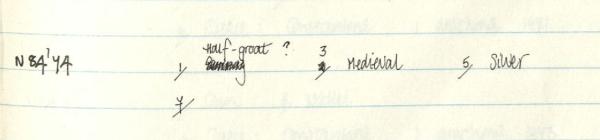 Half-groat ? 3
N 84'YA 1, 2, Medieval 5, Silver
7,